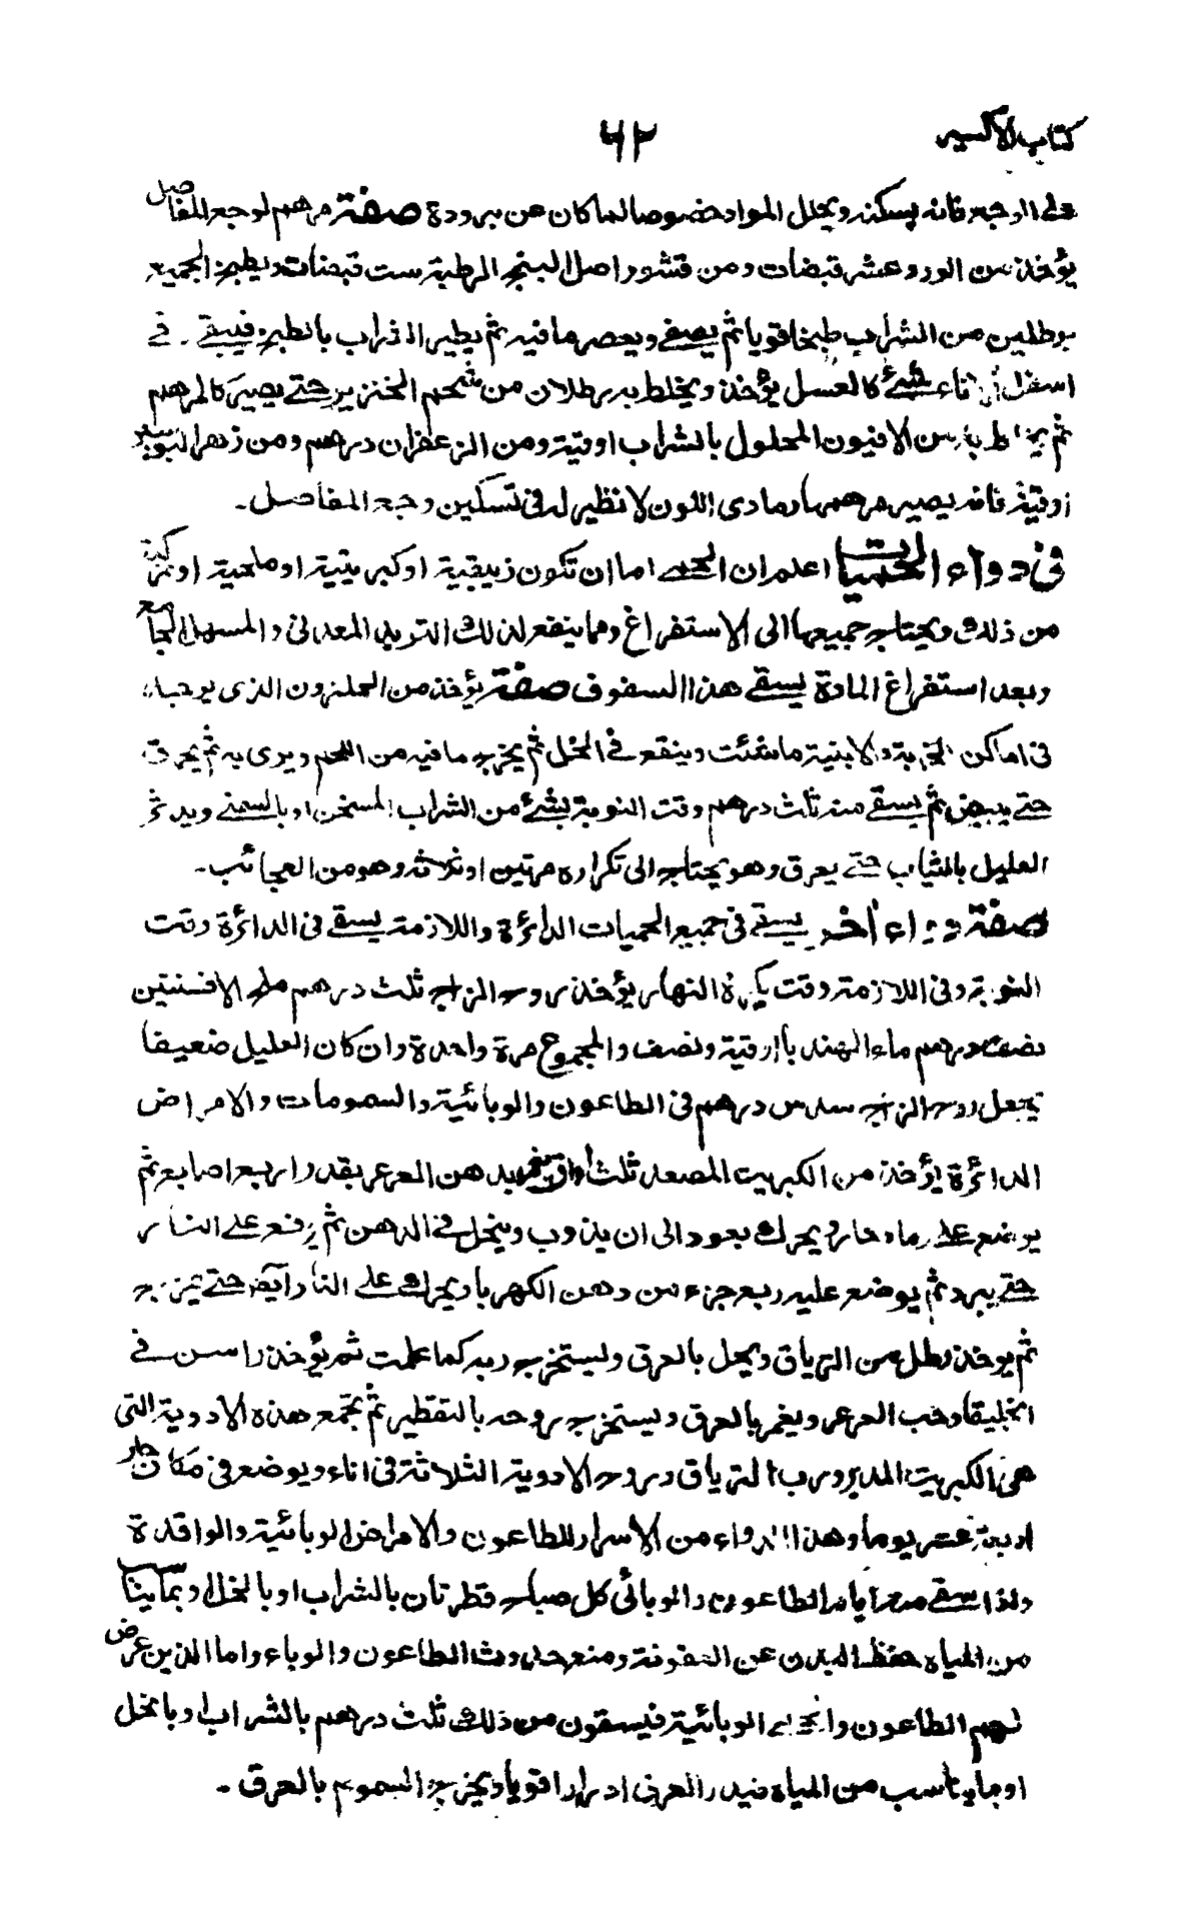 كتاب الاكسير ٦٢
على الوجع فانه يسكنه ويحلل المواد خصوصا لما كان عن برودة صفة مرهم لوجع المفاصل
يؤخذ من الورد عشر قبضات ومن قشور اصل البنج الرطبة ست قبضات ويطبخ الجميع
برطلين من الشراب طبخا قويا ثم يصفى ويعصر ما فيه ثم يطير الشراب بالطبخ فيبقى في
اسفل الاناء شئ كالعسل يؤخذ ويخلط به رطلان من شحم الخنزير حتى يصير كالمرهم
ثم يخلط به من الافيون المحلول بالشراب اوقية ومن الزعفران درهم ومن زهر البوصير
اوقية فانه يصير مرهما رمادى اللون لا نظير له فى تسكين وجع المفاصل.
فى دواء الحميات اعلم ان الحمى اما ان تكون زيبقية او كبريتية او ملحية او مركبة
من ذلك ويحتاج جميعها الى الاستفراغ ومما ينفع لذلك التوبد المعدنى والمسهل الجامع
وبعد استفراغ المادة يسقى هذا السفوف صفة يؤخذ من الحلزون الذى يوجد
فى اماكن الخربة والابنية ما شئت وينقع فى الخل ثم يخرج ما فيه من اللحم ويرمى به ثم يحرق
حتى يبيض ثم يسقى منه ثلث درهم وقت النوبة بشئ من الشراب المسخن او بالسمنى ويدثر
العليل بالثياب حتى يعرق وهو يحتاج الى تكراره مرتين او ثلاثة وهو من العجائب.
صفة دواء أخر يسقى فى جميع الحميات الدائرة واللازمة يسقى فى الدائرة وقت
النوبة وفى اللازمة وقت بكرة النهار يؤخذ روح الزاج ثلث درهم ملح الافسنتين
نصف درهم ماء الهندبا اوقية ونصف والمجموع مرة واحدة وان كان العليل ضعيفا
تجعل روح الزاج سدس درهم فى الطاعون والوبائية والسمومات والامراض
الدائرة يؤخذ من الكبريت المصعد ثلث اواق يغمر بدهن العرعر بقدر اربع اصابع ثم
يوضع على رماد حار ويحرك بعود الى ان يذوب وينحل فى الدهن ثم يرفع على النار
حتى يبرد ثم يوضع عليه ربع جزء من دهن الكهربا ويحرك على النار ايضا حتى يمتزج
ثم يوخذ رطل من الترياق ويحل بالعرق وليستخرج ربه كما علمت ثم يؤخذ راسن
انجليقا وحب العرعر ويغمر بالعرق ويستخرج روحه بالتقطير ثم تجمع هذه الادوية التى
هى الكبريت المدبر ورب الترياق وروح الادوية الثلاثة فى اناء ويوضع فى مكان حار
اربعة عشر يوما وهذا الدواء من الاسرار للطاعون والامراض الوبائية والوافدة
واذا سقى منه ايام الطاعون والوبائى كل صباح قطرتان بالشراب او بالخل او بما يناسب
من المياه حفظ البدن عن العفونة ومنع حدوث الطاعون والوباء واما الذين عرض
لهم الطاعون والحمى الوبائية فيسقون من ذلك ثلث درهم بالشراب او بالخل
او بما يناسب من المياه فيدر العرق ادرارا قويا ويخرج السموم بالعرق.